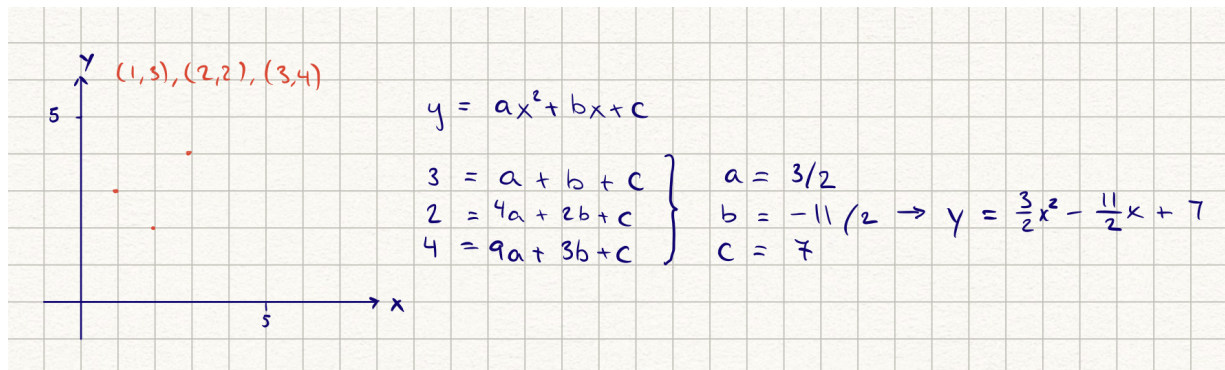 y
(1,3), (2,2), (3,4)
5
x
5
y = ax² + bx + c
3 = a + b + c
2 = 4a + 2b + c
4 = 9a + 3b + c
a = 3/2
b = -11/2 → y = 3/2 x² - 11/2 x + 7
c = 7